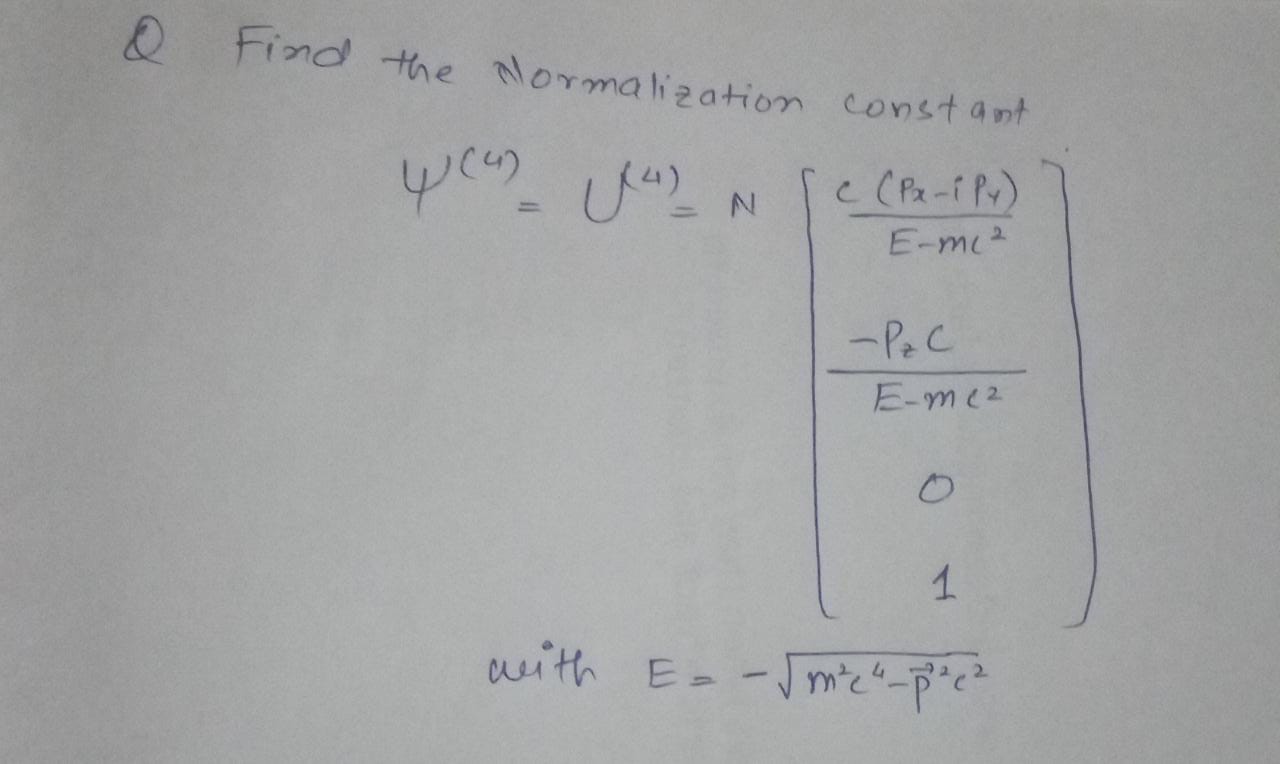 Q Find the Normalization constant
ψ⁽⁴⁾ = U⁽⁴⁾ = N [ c (Px - i Py)
E-mc²
-Pz C
E-mc²
0
1 ]
with E = -√m²c⁴-p⃗²c²